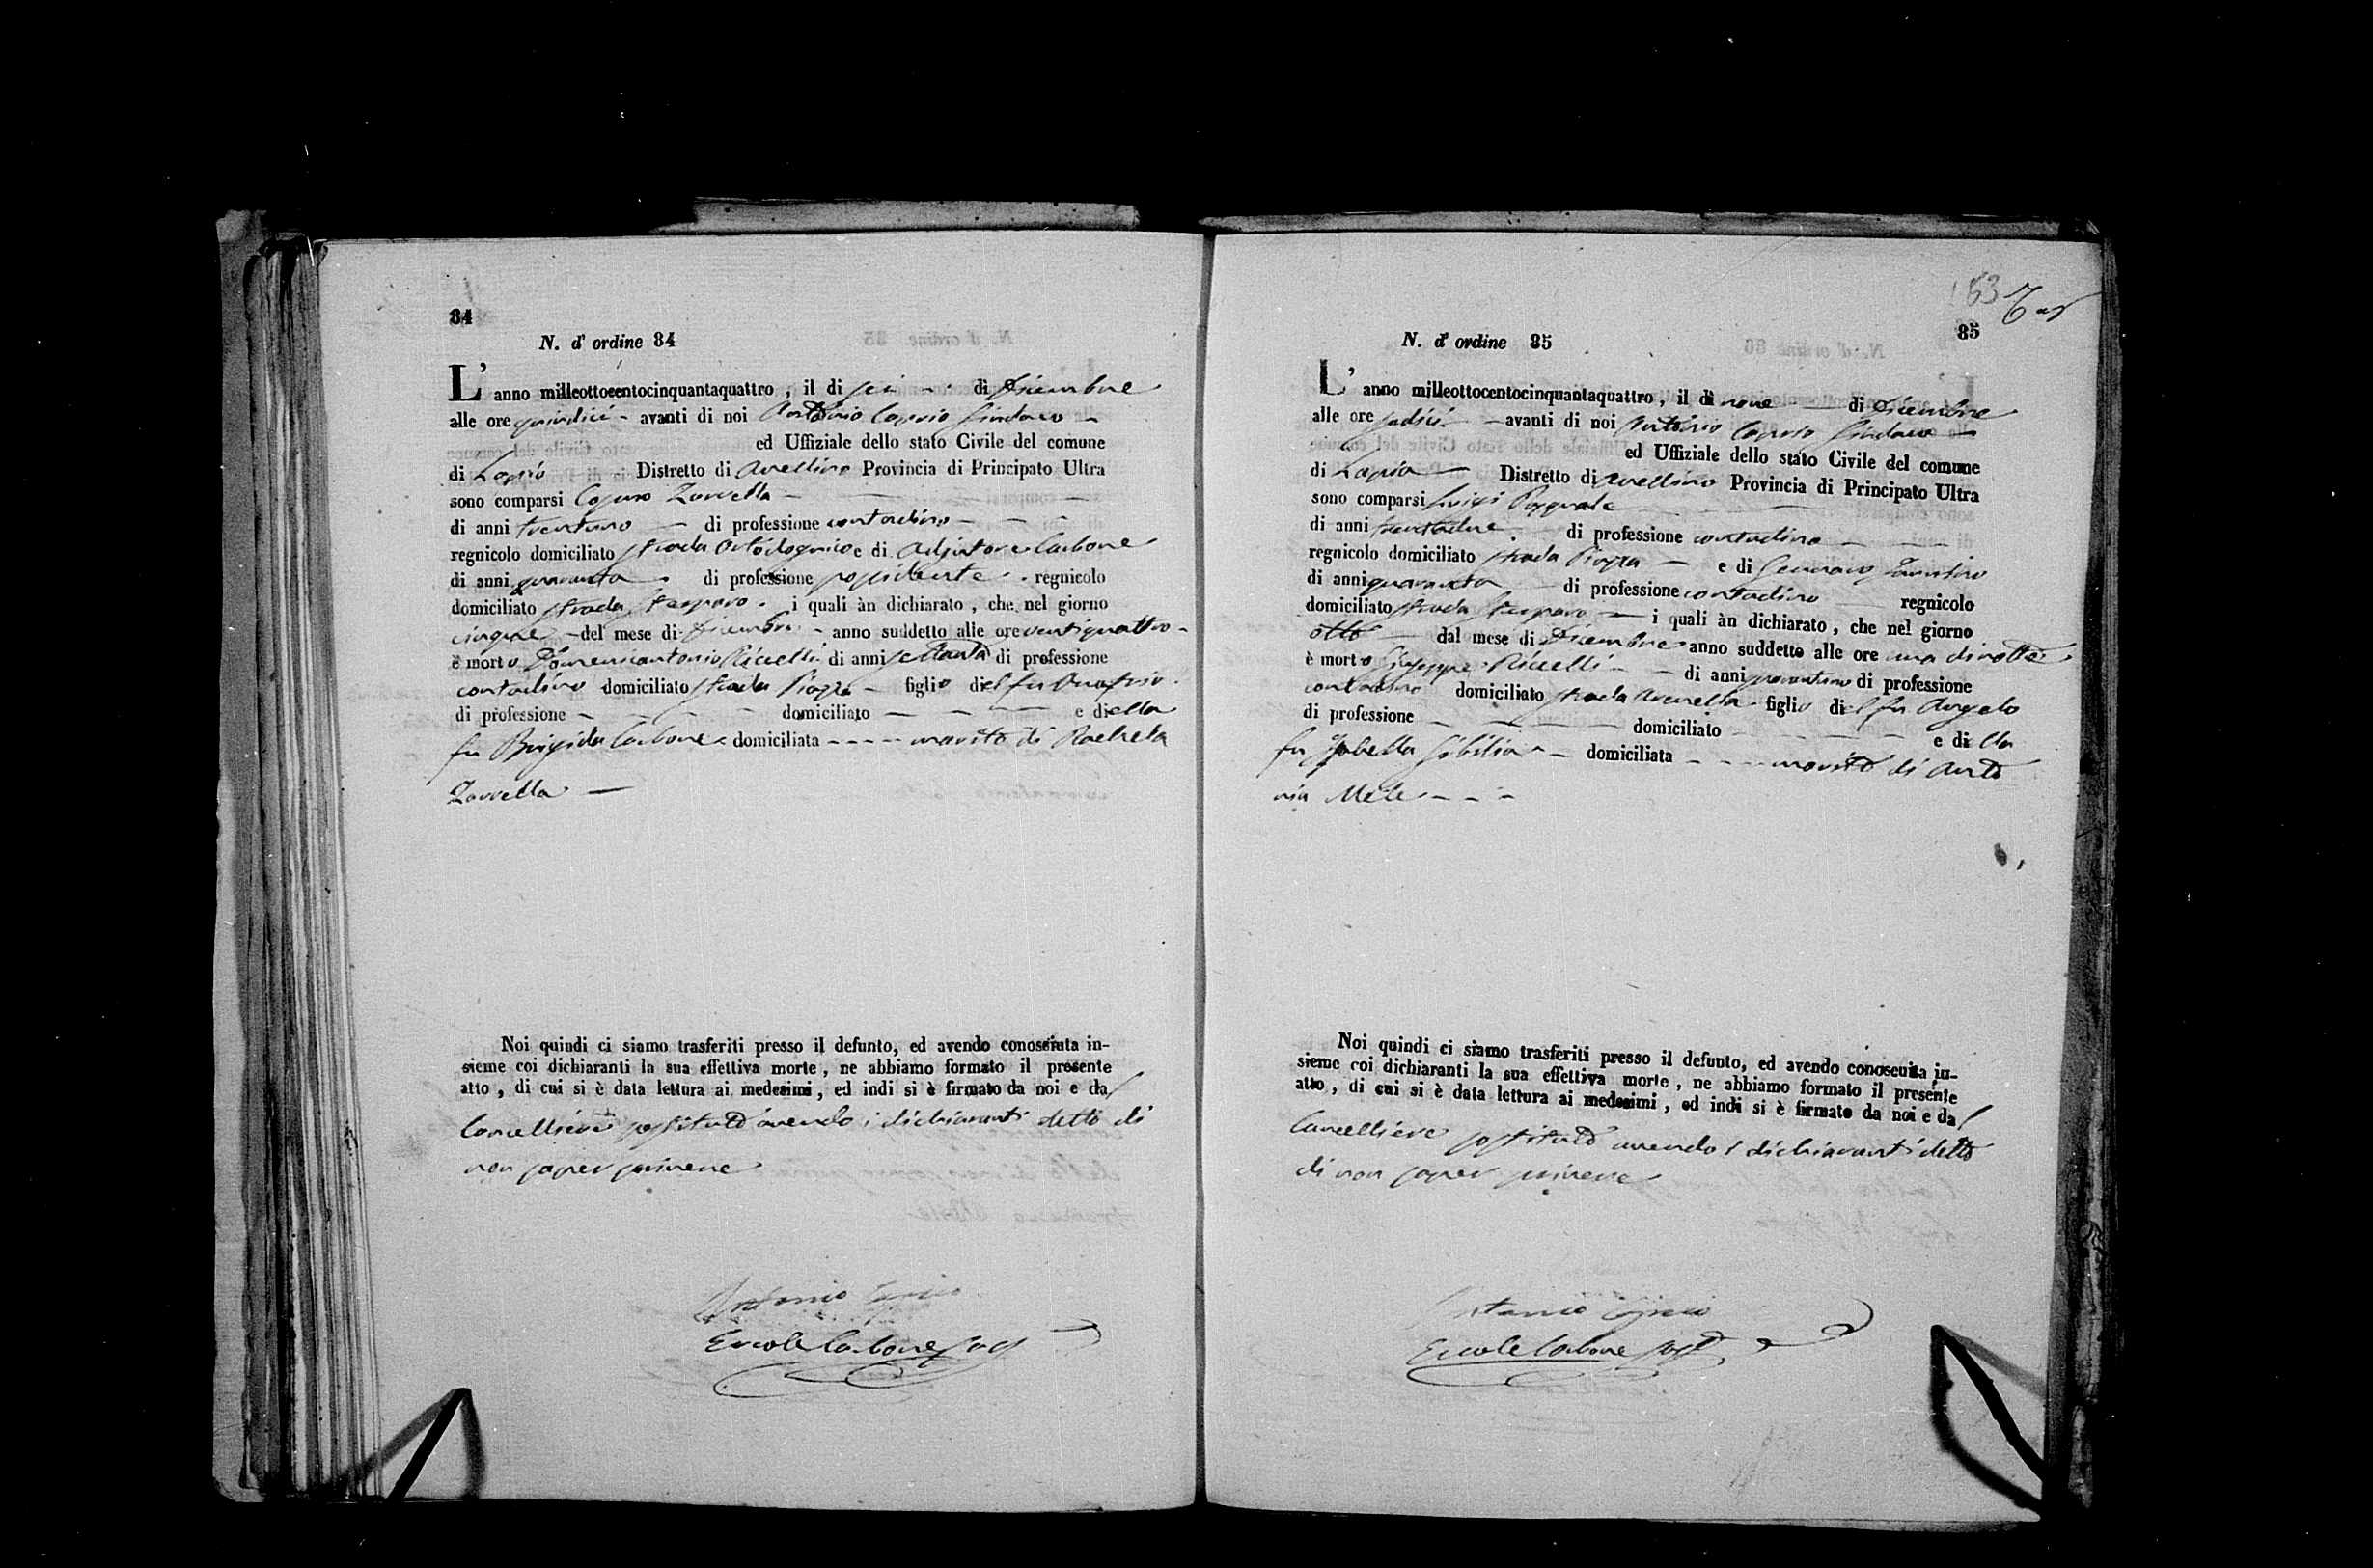 84
N. d' ordine 84
L' anno milleottocentocinquantaquattro, il dì sei di Dicembre
alle ore quindici avanti di noi Antonio Caprio Sindaco
ed Uffiziale dello stato Civile del comune
di Lapio Distretto di Avellino Provincia di Principato Ultra
sono comparsi Zarrella
di anni trentuno di professione contadino
regnicolo domiciliato strada e di Adjutore Carbone
di anni quaranta di professione possidente regnicolo
domiciliato strada i quali àn dichiarato, che nel giorno
cinque del mese di Dicembre anno suddetto alle ore ventiquattro
è morto Domenicantonio Riccelli di anni settanta di professione
contadino domiciliato strada Piazza figlio del fu Onofrio
di professione domiciliato e della
fu Brigida Carbone domiciliata marito di Rachela
Zarrella
Noi quindi ci siamo trasferiti presso il defunto, ed avendo conosciuta in-
sieme coi dichiaranti la sua effettiva morte, ne abbiamo formato il presente
atto, di cui si è data lettura ai medesimi, ed indi si è firmato da noi e dal
Cancelliere sostituto avendo i dichiaranti detto di
non saper scrivere
Antonio Caprio
Ercole Carbone Sost
153
85
N. d' ordine 85
L' anno milleottocentocinquantaquattro, il dì nove di Dicembre
alle ore sedici avanti di noi Antonio Caprio Sindaco
ed Uffiziale dello stato Civile del comune
di Lapio Distretto di Avellino Provincia di Principato Ultra
sono comparsi Luigi Pasquale
di anni trentadue di professione contadino
regnicolo domiciliato strada Piazza e di Gennaro
di anni quaranta di professione contadino regnicolo
domiciliato strada i quali àn dichiarato, che nel giorno
otto dal mese di Dicembre anno suddetto alle ore una di notte
è morto Giuseppe Riccelli di anni di professione
contadino domiciliato strada figlio del fu Angelo
di professione domiciliato e della
fu Isabella Sibilia domiciliata marito di Anto
nia Mele
Noi quindi ci siamo trasferiti presso il defunto, ed avendo conosciuta in-
sieme coi dichiaranti la sua effettiva morte, ne abbiamo formato il presente
atto, di cui si è data lettura ai medesimi, ed indi si è firmato da noi e dal
Cancelliere sostituto avendo i dichiaranti detto
di non saper scrivere
Antonio Caprio
Ercole Carbone Sost